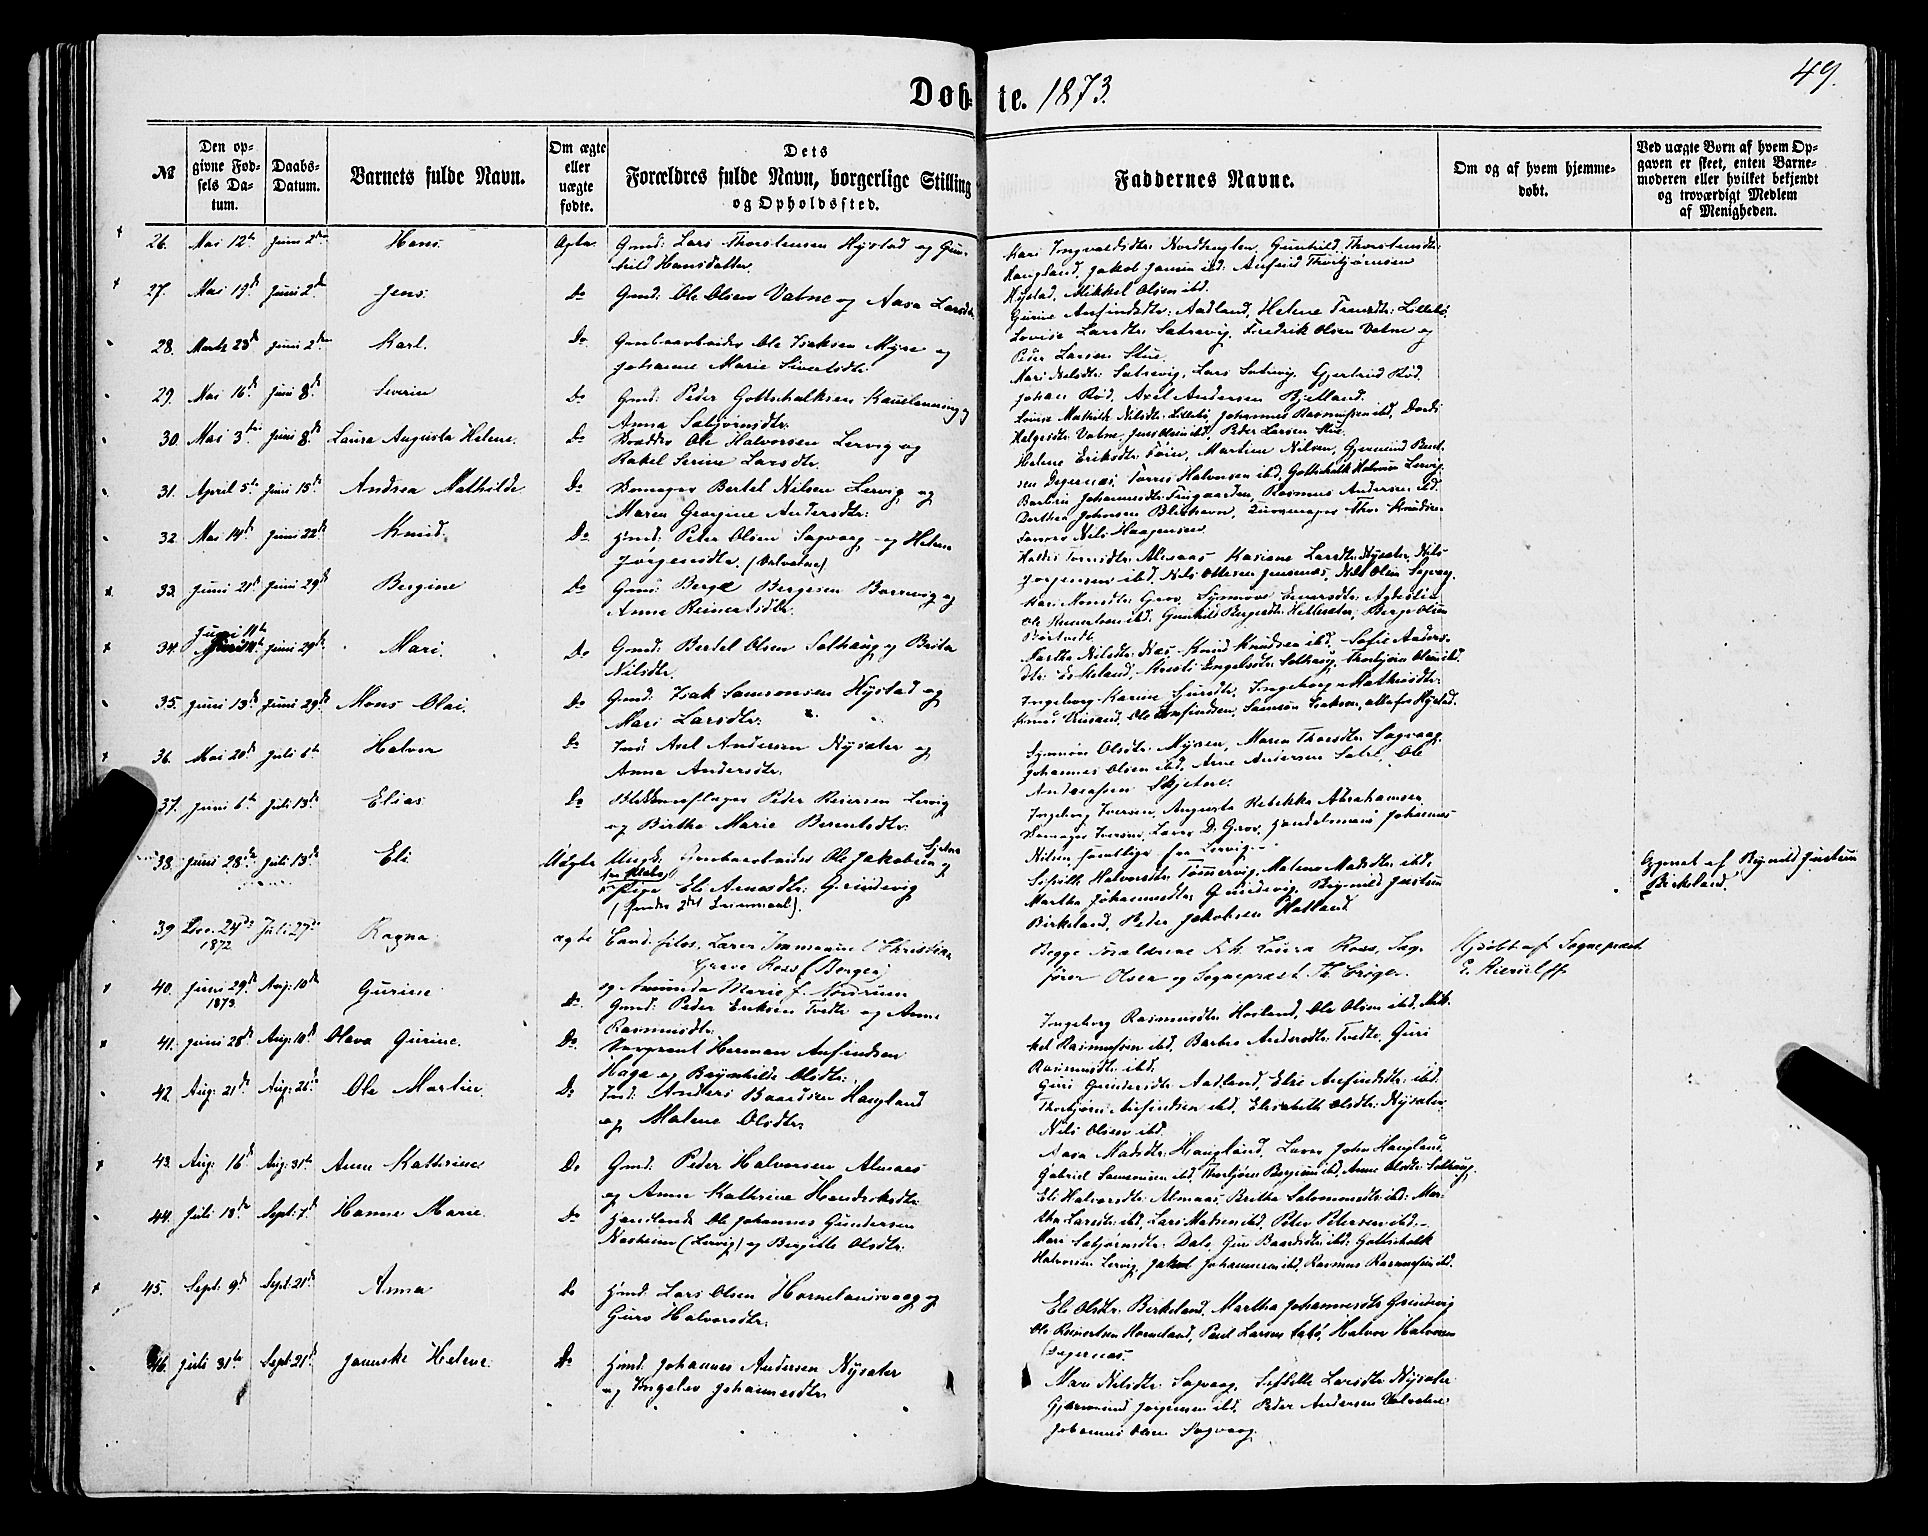 49.
Døbte. 1873.
№
Den opgivne Fødsels Datum.
Daabs-Datum.
Barnets fulde Navn.
Om ægte eller uægte fødte.
Dets Forældres fulde Navn, borgerlige Stilling og Opholdssted.
Faddernes Navne.
Om og af hvem hjemmedøbt.
Ved uægte Børn af hvem Opgaven er skeet, enten Barnemoderen eller hvilket bekjendt og troværdigt Medlem af Menigheden.
26. Mai 12te Juni 2den Hans Ægte. Gmd: Lars Thorstensen Hystad og Gunhild Hansdatter
Kari Ingvaldsdtr: Nordhuglen, Gunhild Thorstensdtr:
Haugland, Jakob Jansen ibd: Anfind Thorbjørnsen
Hystad, Mikkel Olsen ibd.
27. Mai 19de Juni 2den Jens. Do Gmd: Ole Olsen Vatne og Aasa Larsdtr
Gurine Anfindsdtr: Aadland, Helene Lillebø
Lovise Larsdtr: Sætrevig, Fredrik Olsen Vatne og
Peder Larsen Stue.
28. Marts 23de Juni 2den Karl. Do Grubearbeider Ole Isaksen Myre og
Johanne Marie Sivertsdtr:
Mari Nilsdtr: Sætrevig, Lars Sætrevig, Gjertrud Rød,
Johan Rød, Axel Andersen Bjelland.
29. Mai 16de Juni 8de Severin Do Gmd: Peder Gottschalksen og
Anna Sæbjørnsdtr.
Louise Mathilde Nilsdtr: Lillebø, Johannes Rasmussen ibd, Dordi
Helgesdtr: Vatne, Jens Olsen ibd, Peder Larsen Stue.
30. Mai 3die Juni 8de Laura Augusta Helene. Do Ole Halvorsen Lervig og
Rakel Serine Larsdtr.
Helene Eriksdtr: Føien, Martine Nilsen, Gjermund Berntsen
Degernæs, Torres Halvorsen ibd, Gottschalk Halvorsen Lervig.
31. April 5te Juni 15de Andrea Mathilde Do Bertel Nilsen Lervig og
Maren Georgine Andersdtr:
Barbru Johannesdtr: Rasmus Andersen ibd.
Dorthea Johnsen Thor Knudsen
Nils Haagensen
32. Mai 14de Juni 22de Knud. Do Hmd: Peder Olsen Sagvaag og Helene
Jørgensdtr. (Valvatne)
Almaas Kasiane Larsdtr: Nysæter, Nils
Jørgensen ibd, Nils Ottesen Jensenæs, Nils Olsen Sagvaag.
33. Juni 21de Juni 29de Bergine Do Gmd: Berge Bergesen og
Anne Reinertsdtr.
Kari Monsdtr: Grov, Synnøve Einarsdtr:
Ole ibd, Gunhild Bergesdtr: Hetlesæter, Berge Olsen
34. Juni 11te Juni 29de Mari. Do Gmd: Bertel Olsen Solhaug og Brita
Nilsdtr.
Martha Nilsdtr: Næs, Knud Knudsen ibd, Sofie Andersdtr:
Engelsdtr: Solhaug, Thorbjørn Olsen ibd.
35. Juni 13de Juni 29de Mons Olai. Do Gmd: Isak Samsonsen Hystad og
Mari Larsdtr.
Ingeborg Karine Sjursdtr: Ingeborg Mathiasdtr:
Ole Anfindsen, Samson Isaksen, alle fra Hystad.
36. Mai 20de Juli 6te Halvor Do Axel Andersen Nysæter og
Anna Andersdtr:
Synnøve Olsdtr: Myren, Maren Thoresdtr: Sagvaag,
Johannes Olsen ibd, Arne Andersen Ole
Andreassen Skjetne.
37. Juni 6te Juli 13de Elias Do Blikkenslager Peder Reiersen Lervig
og Birthe Marie Berentsdtr:
Ingeborg Iversen, Augusta Rebekka Abrahamsen,
Iversen, Lærer D. Grov, Handelsmand Johannes
Nilsen, samtlige fra Lervig.
38. Juni 28de Juli 13de Eli Uægte Ungk. Grubearbeider Ole Jakobsen og
Pige Eli Arnesdtr: Grindevig
(Hendes 2det Leiermaal).
Halvorsdtr: Tømmervig, Malene Madsdtr: ibd,
Martha Johannesdtr: Grindevig, Brynild Justsen
Birkeland, Peder Jakobsen Hatland
Opgivet af Brynild Justsen
Birkeland.
39 Dec. 24de 1872 Juli 27de Ragna ægte Cand. filos. Lærer Immanuel Christian
Greve Ross (Bergen)
og Amunda Marie f. Nordrum
Begge Forældrene Frk. Laura Ross, Sagfører
Olsen og Sognepræst Th. Crøger.
Hjdøbt af Sognepræst
40. Juni 29de 1873. Aug. 10de Gurine Do Gmd: Peder Eriksen Tvedte og Anne
Rasmusdtr:
Ingeborg Rasmusdtr: Hovland, Ole Olsen ibd, Mikkel
Rasmussen ibd, Barbro Andersdtr: Tvedte, Guri
Rasmusdtr: ibd.
41. Juni 28de Aug: 10de Olava Gurine. Do Sergeant Herman Anfindsen
Haga og Brynhilde Olsdtr:
Guri Gundersdtr: Aadland, Elsi Anfindsdtr: ibd.
Thorbjørn Anfindsen ibd, Elisabeth Olsdtr: Nysæter,
Nils Olsen ibd.
42. Aug: 21de Aug: 26de Ole Martin. Do Anders Baardsen Haugland
og Malene Olsdtr.
Aasa Madsdtr: Haugland, Lærer John Haugland,
Gabriel Samsonsen ibd, Thorbjørn Bergesen ibd, Anne Olsdtr: Solhaug,
43. Aug: 16de Aug: 31te Anne Kathrine Do Gmd: Peder Halvorsen Almaas
og Anne Kathrine Hendriksdtr:
Eli Halvorsdtr: Almaas, Britha Salomonsdtr: ibd: Martha
Larsdtr: ibd, Lars Madsen ibd, Peter Petersen ibd.
44. Juli 18de Sept: 7de Hanne Marie. Do Handlende Ole Johannes Gundersen
Næsheim (Lervig) og Bergitte Olsdtr:
Mari Sæbjørnsdtr: Dale, Guri Baardsdtr: ibd: Gottschalk
Halvorsen Lervig, Jakob Johannesen ibd, Rasmus Rasmussen ibd.
45. Sept: 9de Sept: 21de Anna Do Hmd: Lars Olsen Hornelandsvaag og
Guro Halvorsdtr:
Eli Olsdtr: Birkeland, Martha Johannesdtr: Grindevig
Ole Reinertsen Horneland, Paul Larsen Halvor Halvorsen
Degernæs.
46. Juli 31te Sept: 21de Janneke Helene. Do Hmd: Johannes Andersen Nysæter
og Ingelev Johannesdtr:
Mari Nilsdtr: Sagvaag, Larsdtr: Nysæter
Gjermund Jørgensen ibd, Peder Andersen Valvatne
Johannes Olsen Sagvaag.